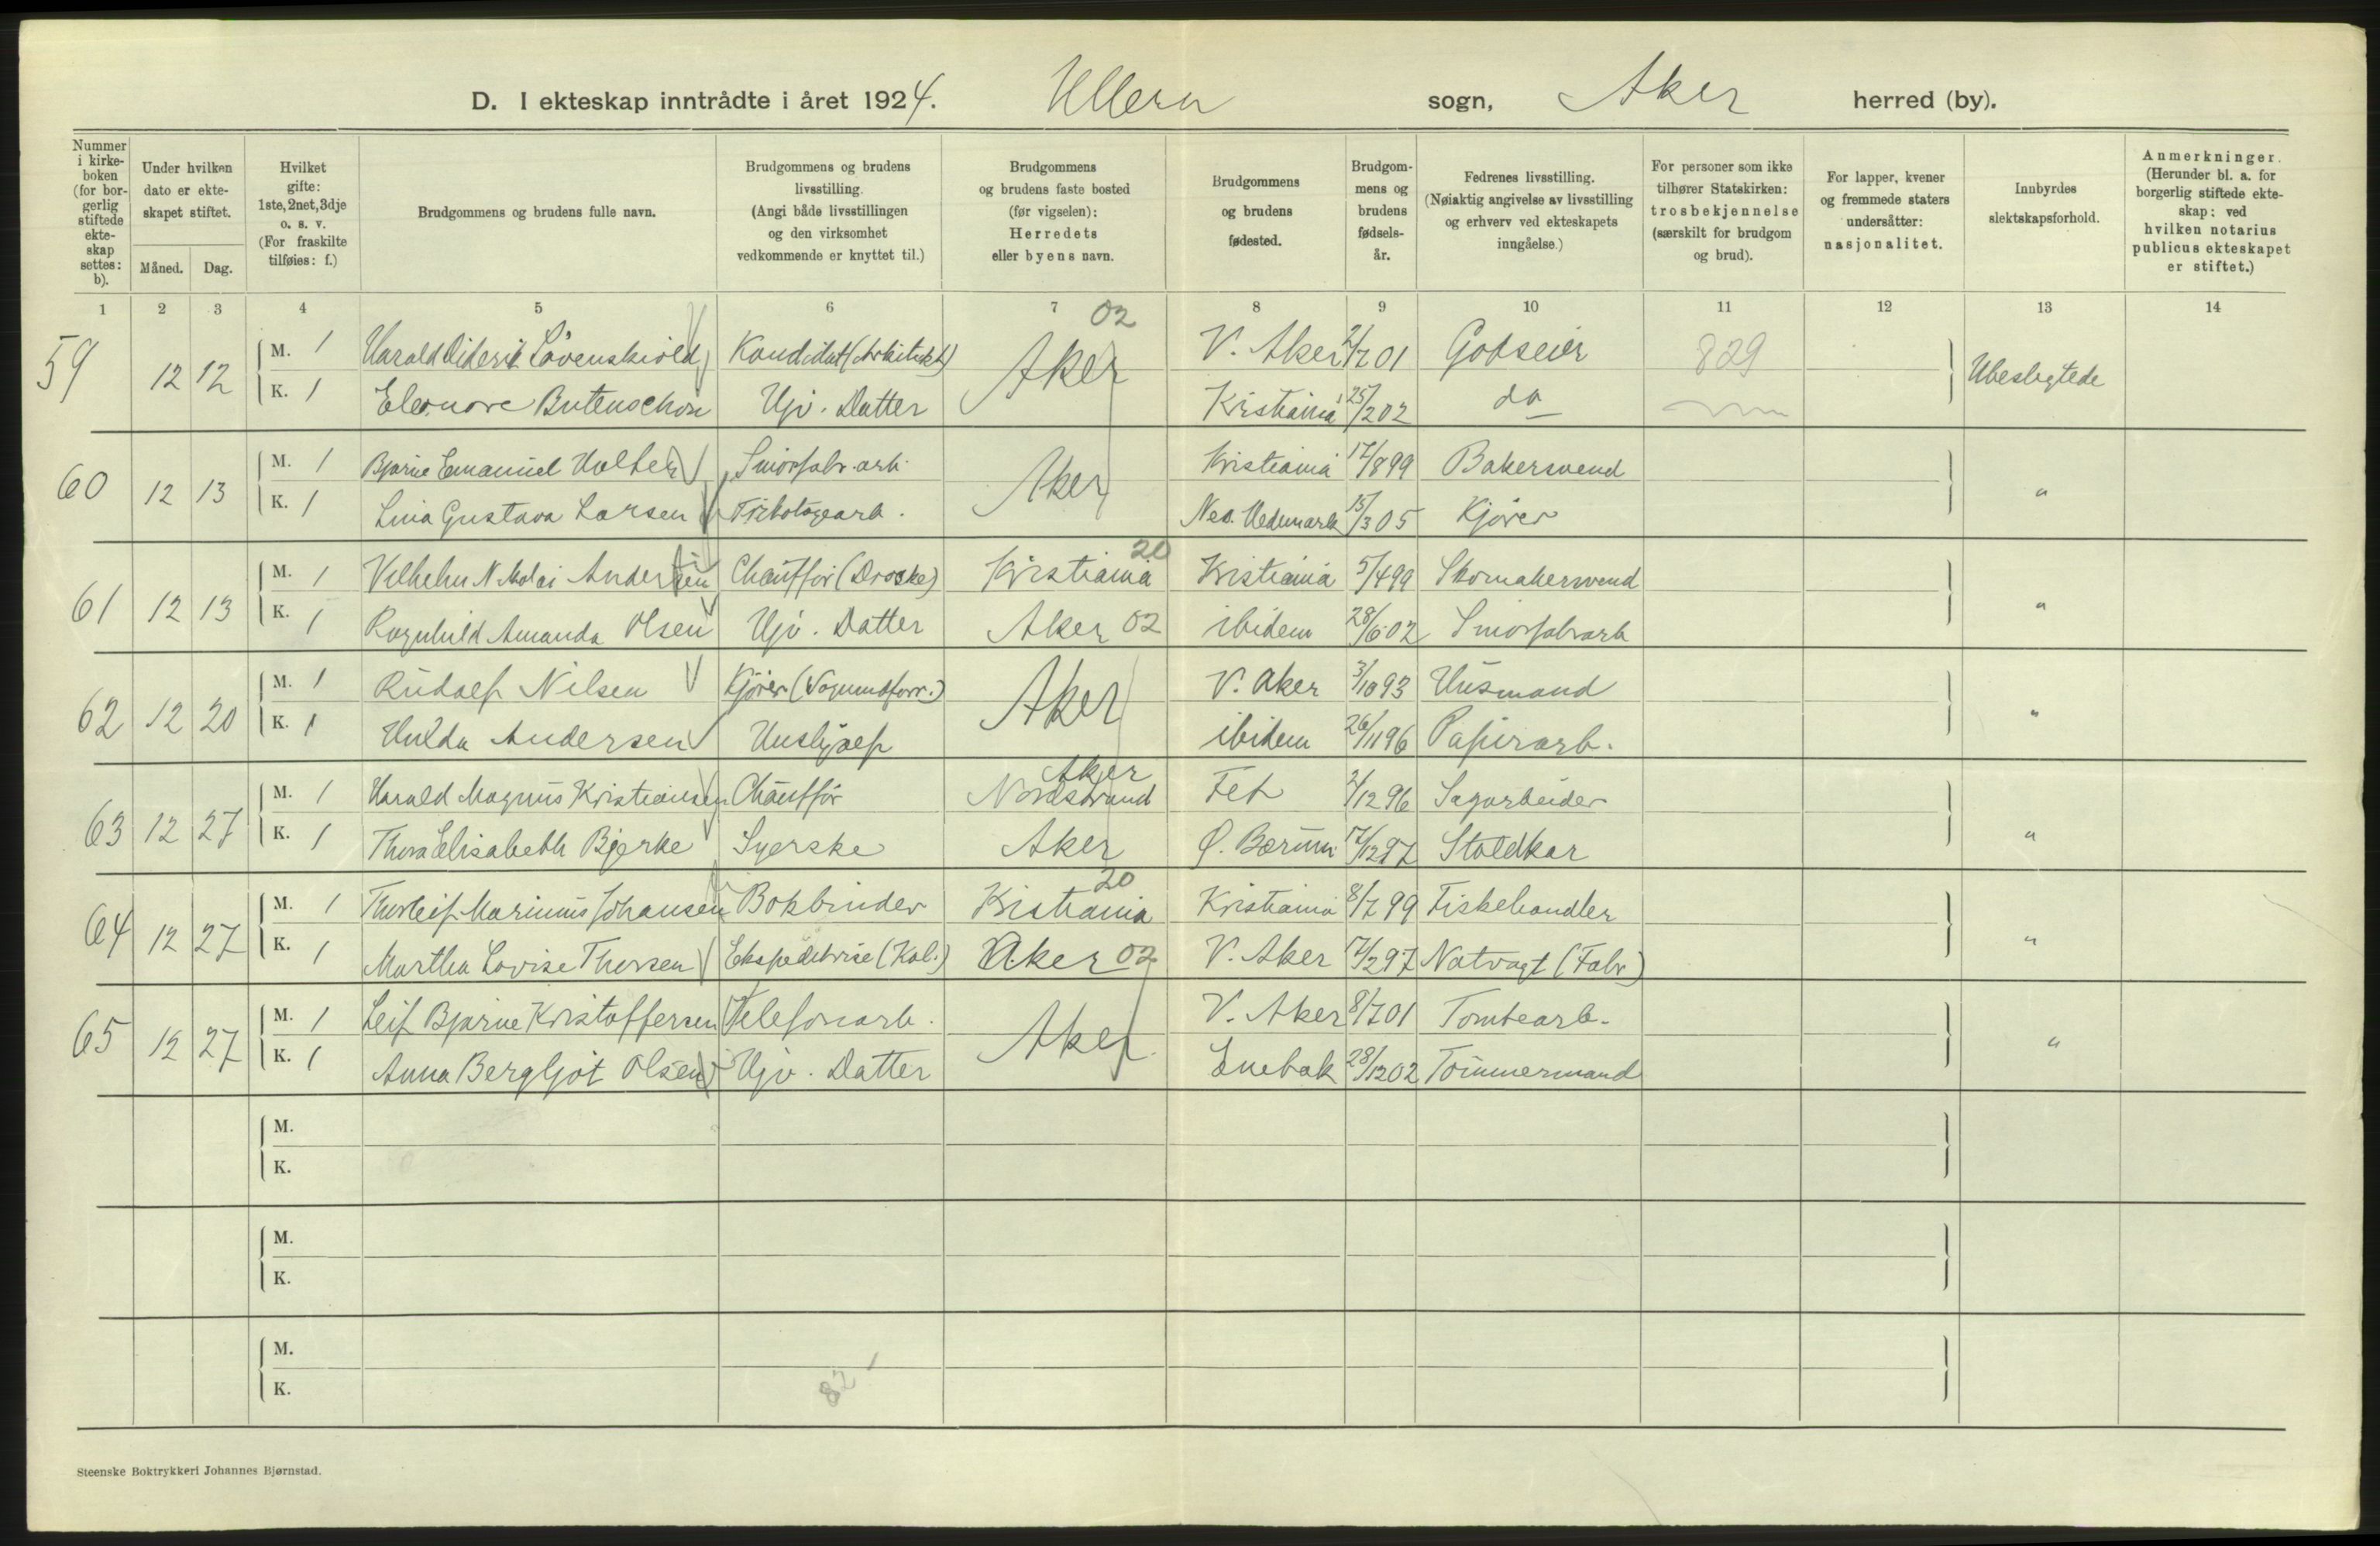 D. I ekteskap inntrådte i året 1924. Ullern sogn, Aker herred (by).
Nummer i kirkeboken (for borgerlig stiftede ekteskap settes: b).
Under hvilken dato er ekteskapet stiftet. Måned. Dag.
Hvilket gifte: 1ste, 2net, 3dje o. s. v. (For fraskilte tilføies: f.)
Brudgommens og brudens fulle navn.
Brudgommens og brudens livsstilling. (Angi både livsstillingen og den virksomhet vedkommende er knyttet til.)
Brudgommens og brudens faste bosted (før vigselen): Herredets eller byens navn.
Brudgommens og brudens fødested.
Brudgommens og brudens fødselsår.
Fedrenes livsstilling. (Nøiaktig angivelse av livsstilling og erhverv ved ekteskapets inngåelse.)
For personer som ikke tilhører Statskirken: trosbekjennelse (særskilt for brudgom og brud).
For lapper, kvener og fremmede staters undersåtter: nasjonalitet.
Innbyrdes slektskapsforhold.
Anmerkninger. (Herunder bl. a. for borgerlig stiftede ekteskap: ved hvilken notarius publicus ekteskapet er stiftet.)
1 2 3 4 5 6 7 8 9 10 11 12 13 14
02
59 12 12 M. 1 Harald Diderik Løvenskiold Kandidat (Arkitekt) Aker V. Aker 2/7 01 Godseier 829 Ubeslegtede
K. 1 Eleonore Butenschøn Hjv. Datter Kristiania 25/2 02 do
60 12 13 M. 1 Bjarne Emanuel Holter Smørfabr. arb. Aker Kristiania 17/8 99 Bakersvend "
K. 1 Lina Gustava Larsen Trikotagearb. Nes. Hedemark 15/3 05 Kjører
61 12 13 M. 1 Vilhelm Nikolai Andersen Chauffør (Droske) Kristiania 20 Kristiania 5/4 99 Skomakersvend "
K. 1 Ragnhild Amanda Olsen Hjv. Datter Aker 02 ibidem 28/6 02 Smørfabrarb
62 12 20 M. 1 Rudolf Nilsen Kjører (Vognmdforr.) Aker V. Aker 3/10 93 Husmand "
K. 1 Hulda Andersen Hushjælp ibidem 26/11 96 Papirarb.
63 12 27 M. 1 Harald Magnus Kristiansen Chauffør Aker Nordstrand Fet 2/12 96 Sagarbeider "
K. 1 Thora Elisabeth Bjerke Syerske Aker Ø. Bærum 17/12 97 Staldkar
64 12 27 M. 1 Thorleif Marinius Johansen Bokbinder Kristiania 20 Kristiania 8/7 99 Fiskehandler "
K. 1 Martha Lovise Thorsen Ekspeditrise (Kol.) Aker 02 V. Aker 17/2 97 Natvagt (Fabr)
65 12 27 M. 1 Leif Bjarne Kristoffersen Telefonarb. Aker V. Aker 8/7 01 Tomtearb. "
K. 1 Anna Bergljot Olsen Hjv. Datter Enebak 28/12 02 Tømmermand
M.
K.
M.
K.
M.
K.
82
Steenske Boktrykkeri Johannes Bjørnstad.